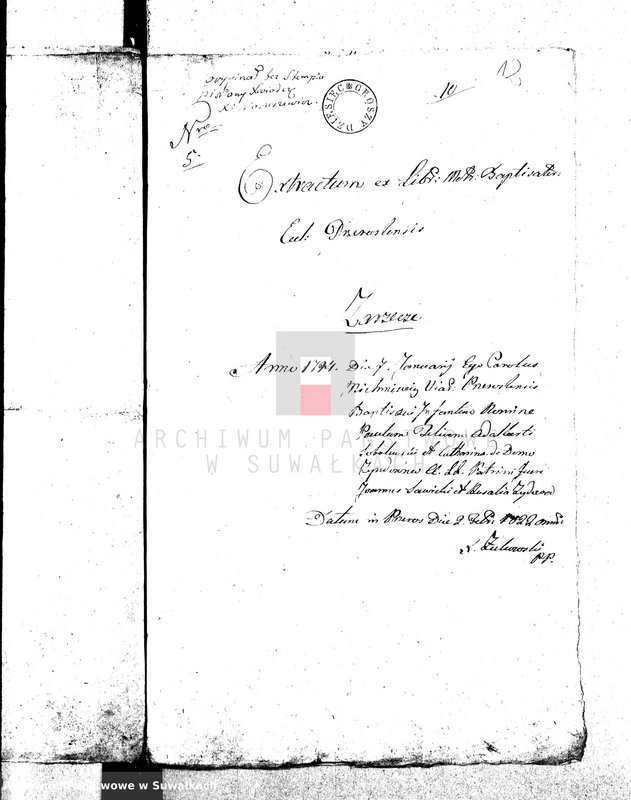 oryginał bez Stempla
pisany
Nro
5.
DZIESIĘC GROSZY
10
12
Extractum ex Libr: Metr: Baptisator:
Eccl: Przeroslensis
Zarzecze
Anno 1794. Die 7. Januarij Ego Carolus
Viac: Przeroslensis
Baptisavi Infantem Nomine
Paulum Filium Adalberti
et Catharina de Domo
LL. CC. Patrini Fuere
Joannes Sawicki et Rosalia
Datum in Przeros Die 2. Febr: 1822 anni
X. Żukowski
PP.
ARCHIWUM PAŃSTWOWE
W SUWAŁKACH
wowe w Suwałkach